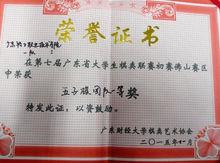 荣誉证书
在第七届广东省大学生棋类联赛初赛佛山赛区
中荣获
五子棋团队一等奖
特发此证，以资鼓励。
广东财经大学棋类艺术协会
二〇一五年十月